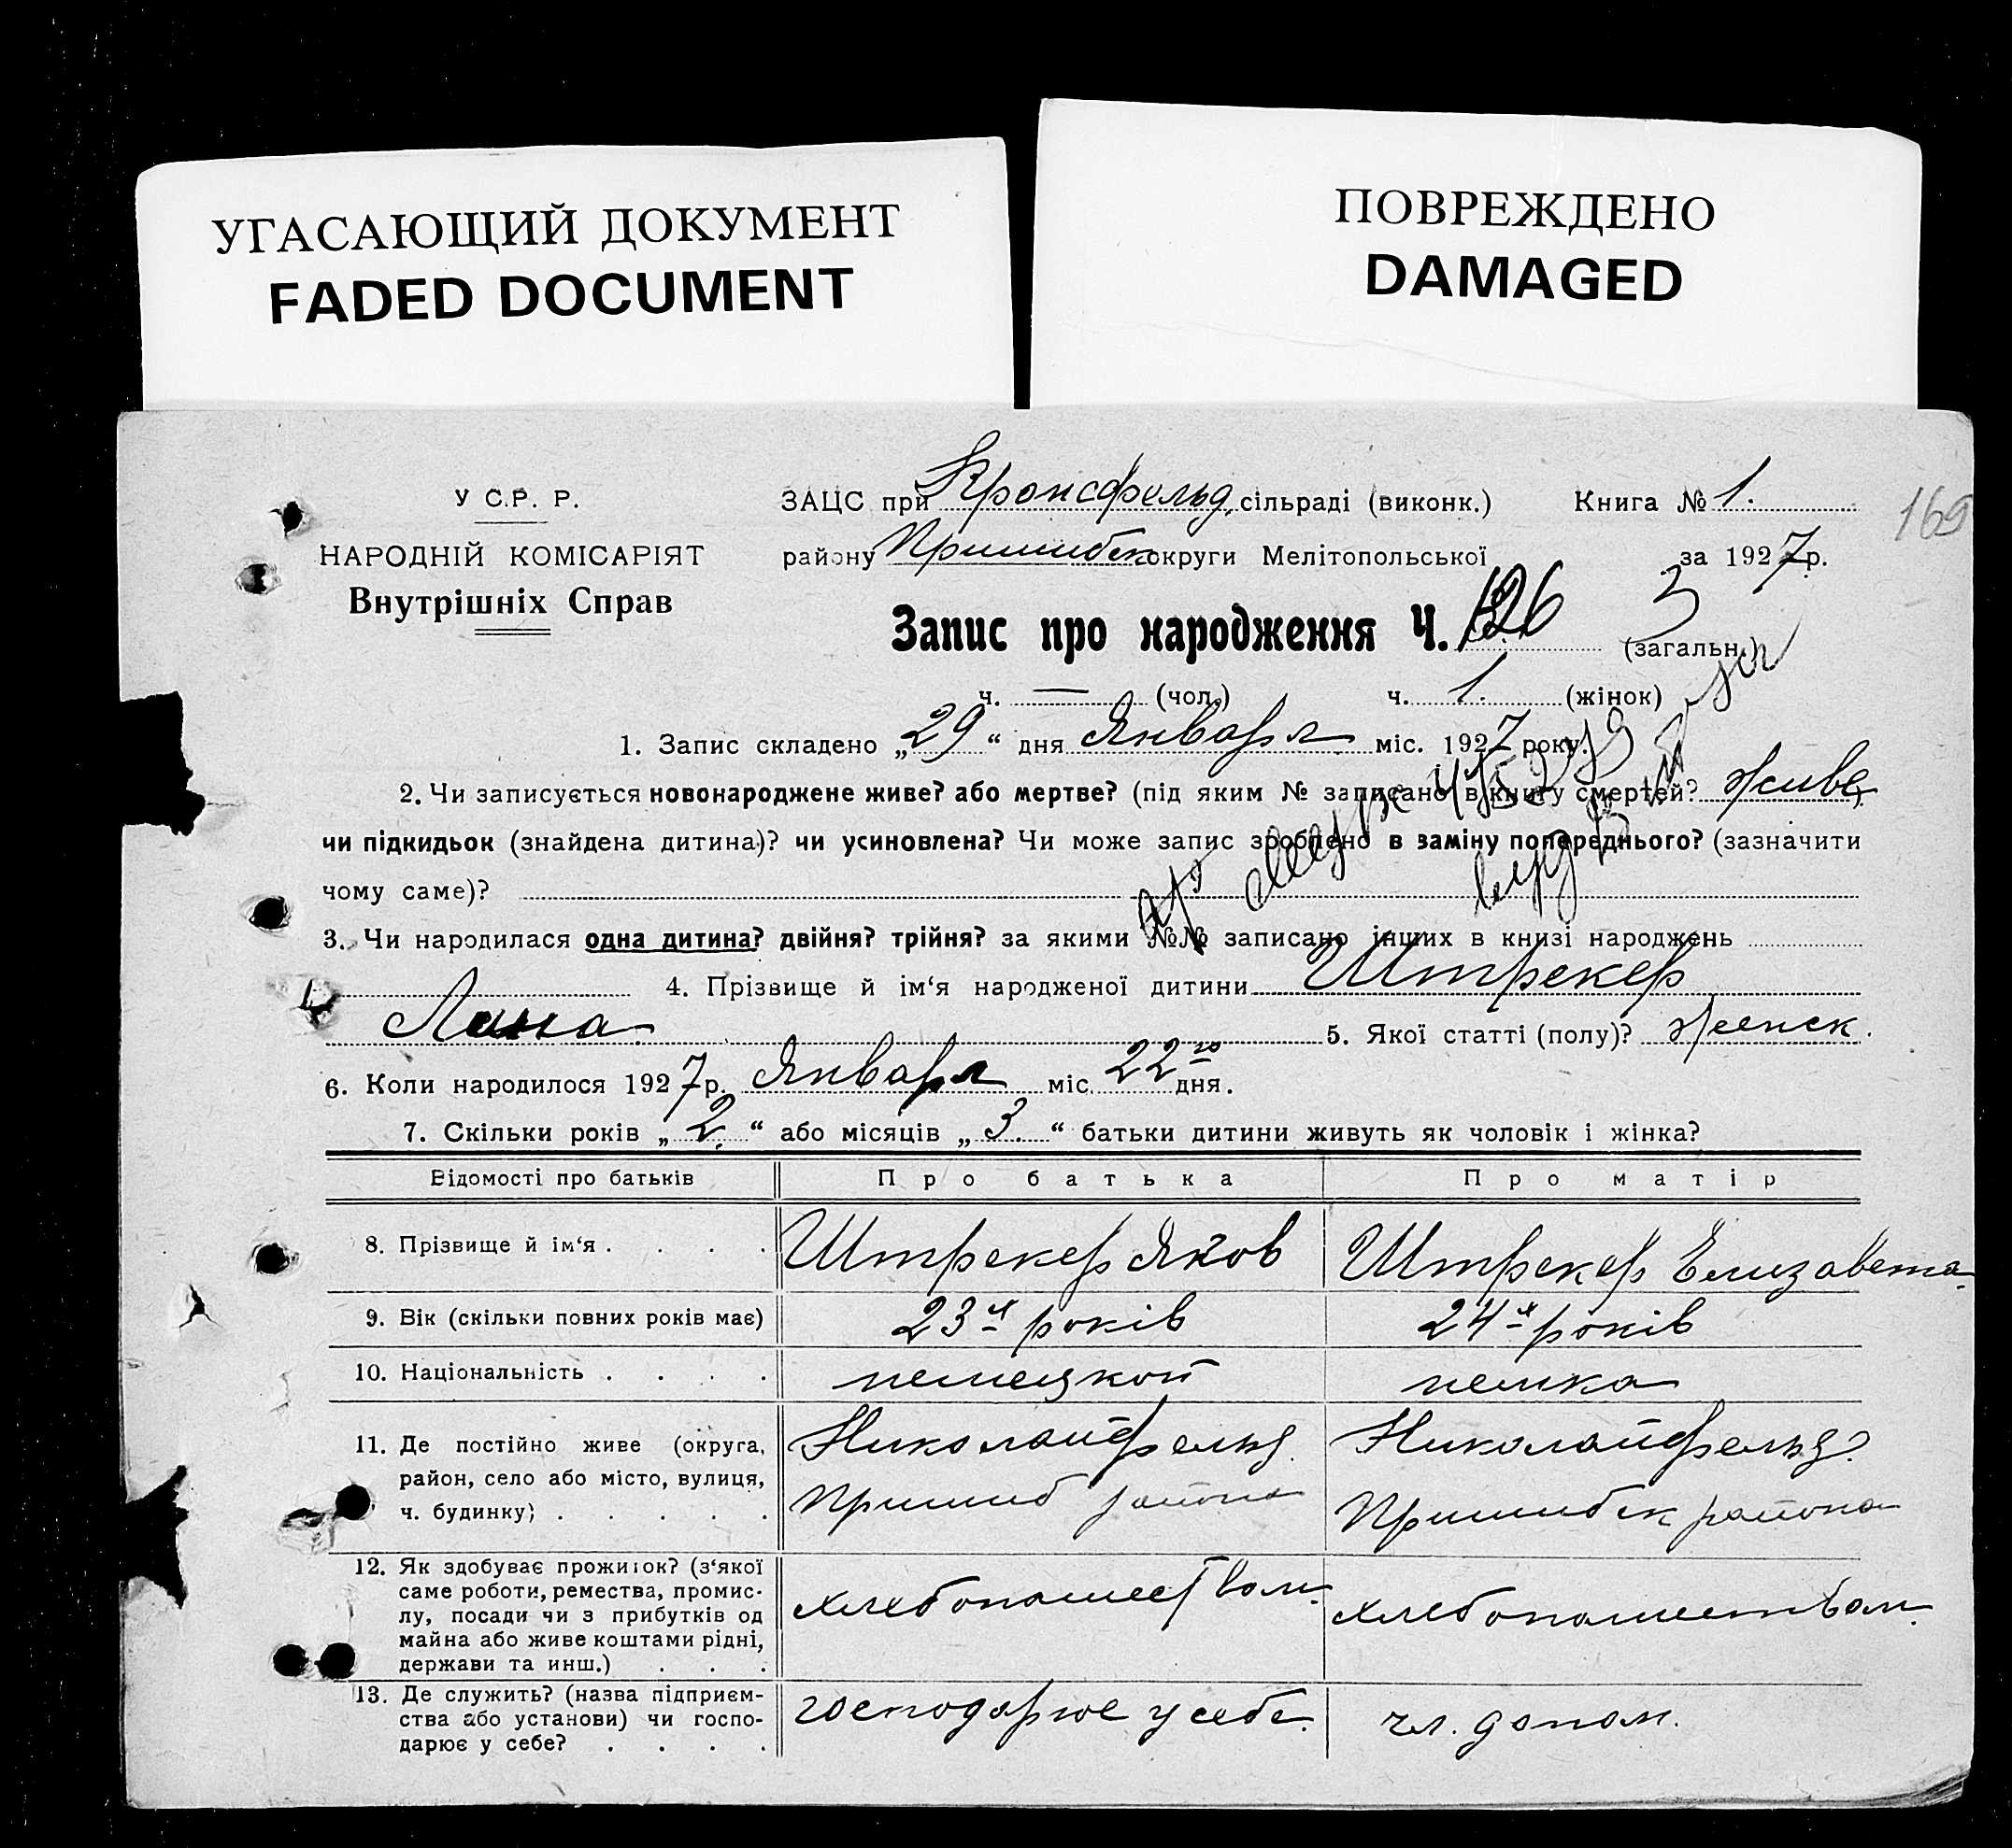 УГАСАЮЩИЙ ДОКУМЕНТ
FADED DOCUMENT
ПОВРЕЖДЕНО
DAMAGED
У С.Р. Р.
НАРОДНІЙ КОМІСАРІЯТ
Внутрішніх Справ
ЗАЦС при Кронсфельд. сільраді (виконк.) Книга № 1.
169
району Пришибск округи Мелітопольської за 1927 р.
Запис про народження Ч. 126 3 (загальн.)
ч. — (чол.) ч. 1. (жінок)
1. Запис складено „29“ дня Января міс. 1927 року.
2. Чи записується новонароджене живе? або мертве? (під яким № записано в книгу смертей? живе)
чи підкидьок (знайдена дитина)? чи усиновлена? Чи може запис зроблено в заміну попереднього? (зазначити
чому саме)?
3. Чи народилася одна дитина? двійня? трійня? за якими №№ записано інших в книзі народжень
4. Прізвище й ім‘я народженої дитини Штрекер
Лина 5. Якої статті (полу)? женск.
6. Коли народилося 1927 р. Января міс. 22го дня.
7. Скільки років „2.“ або місяців „3.“ батьки дитини живуть як чоловік і жінка?
Відомості про батьків Про батька Про матір
8. Прізвище й ім‘я . . . . Штрекер Яков Штрекер Елизавета
9. Вік (скільки повних років має) 23х років 24х років
10. Національність . . . . немецкой немка
11. Де постійно живе (округа, район, село або місто, вулиця, ч. будинку) . . . . .
Николайфельд. Пришиб района
Николайфельд Пришибск района
12. Як здобуває прожиток? (з‘якої саме роботи, ремества, промислу, посади чи з прибутків од майна або живе коштами рідні, держави та инш.) . . .
хлебопашеством.
хлебопашеством.
13. Де служить? (назва підприємства або установи) чи господарює у себе? . . . .
господарює у себе.
чл. допом.